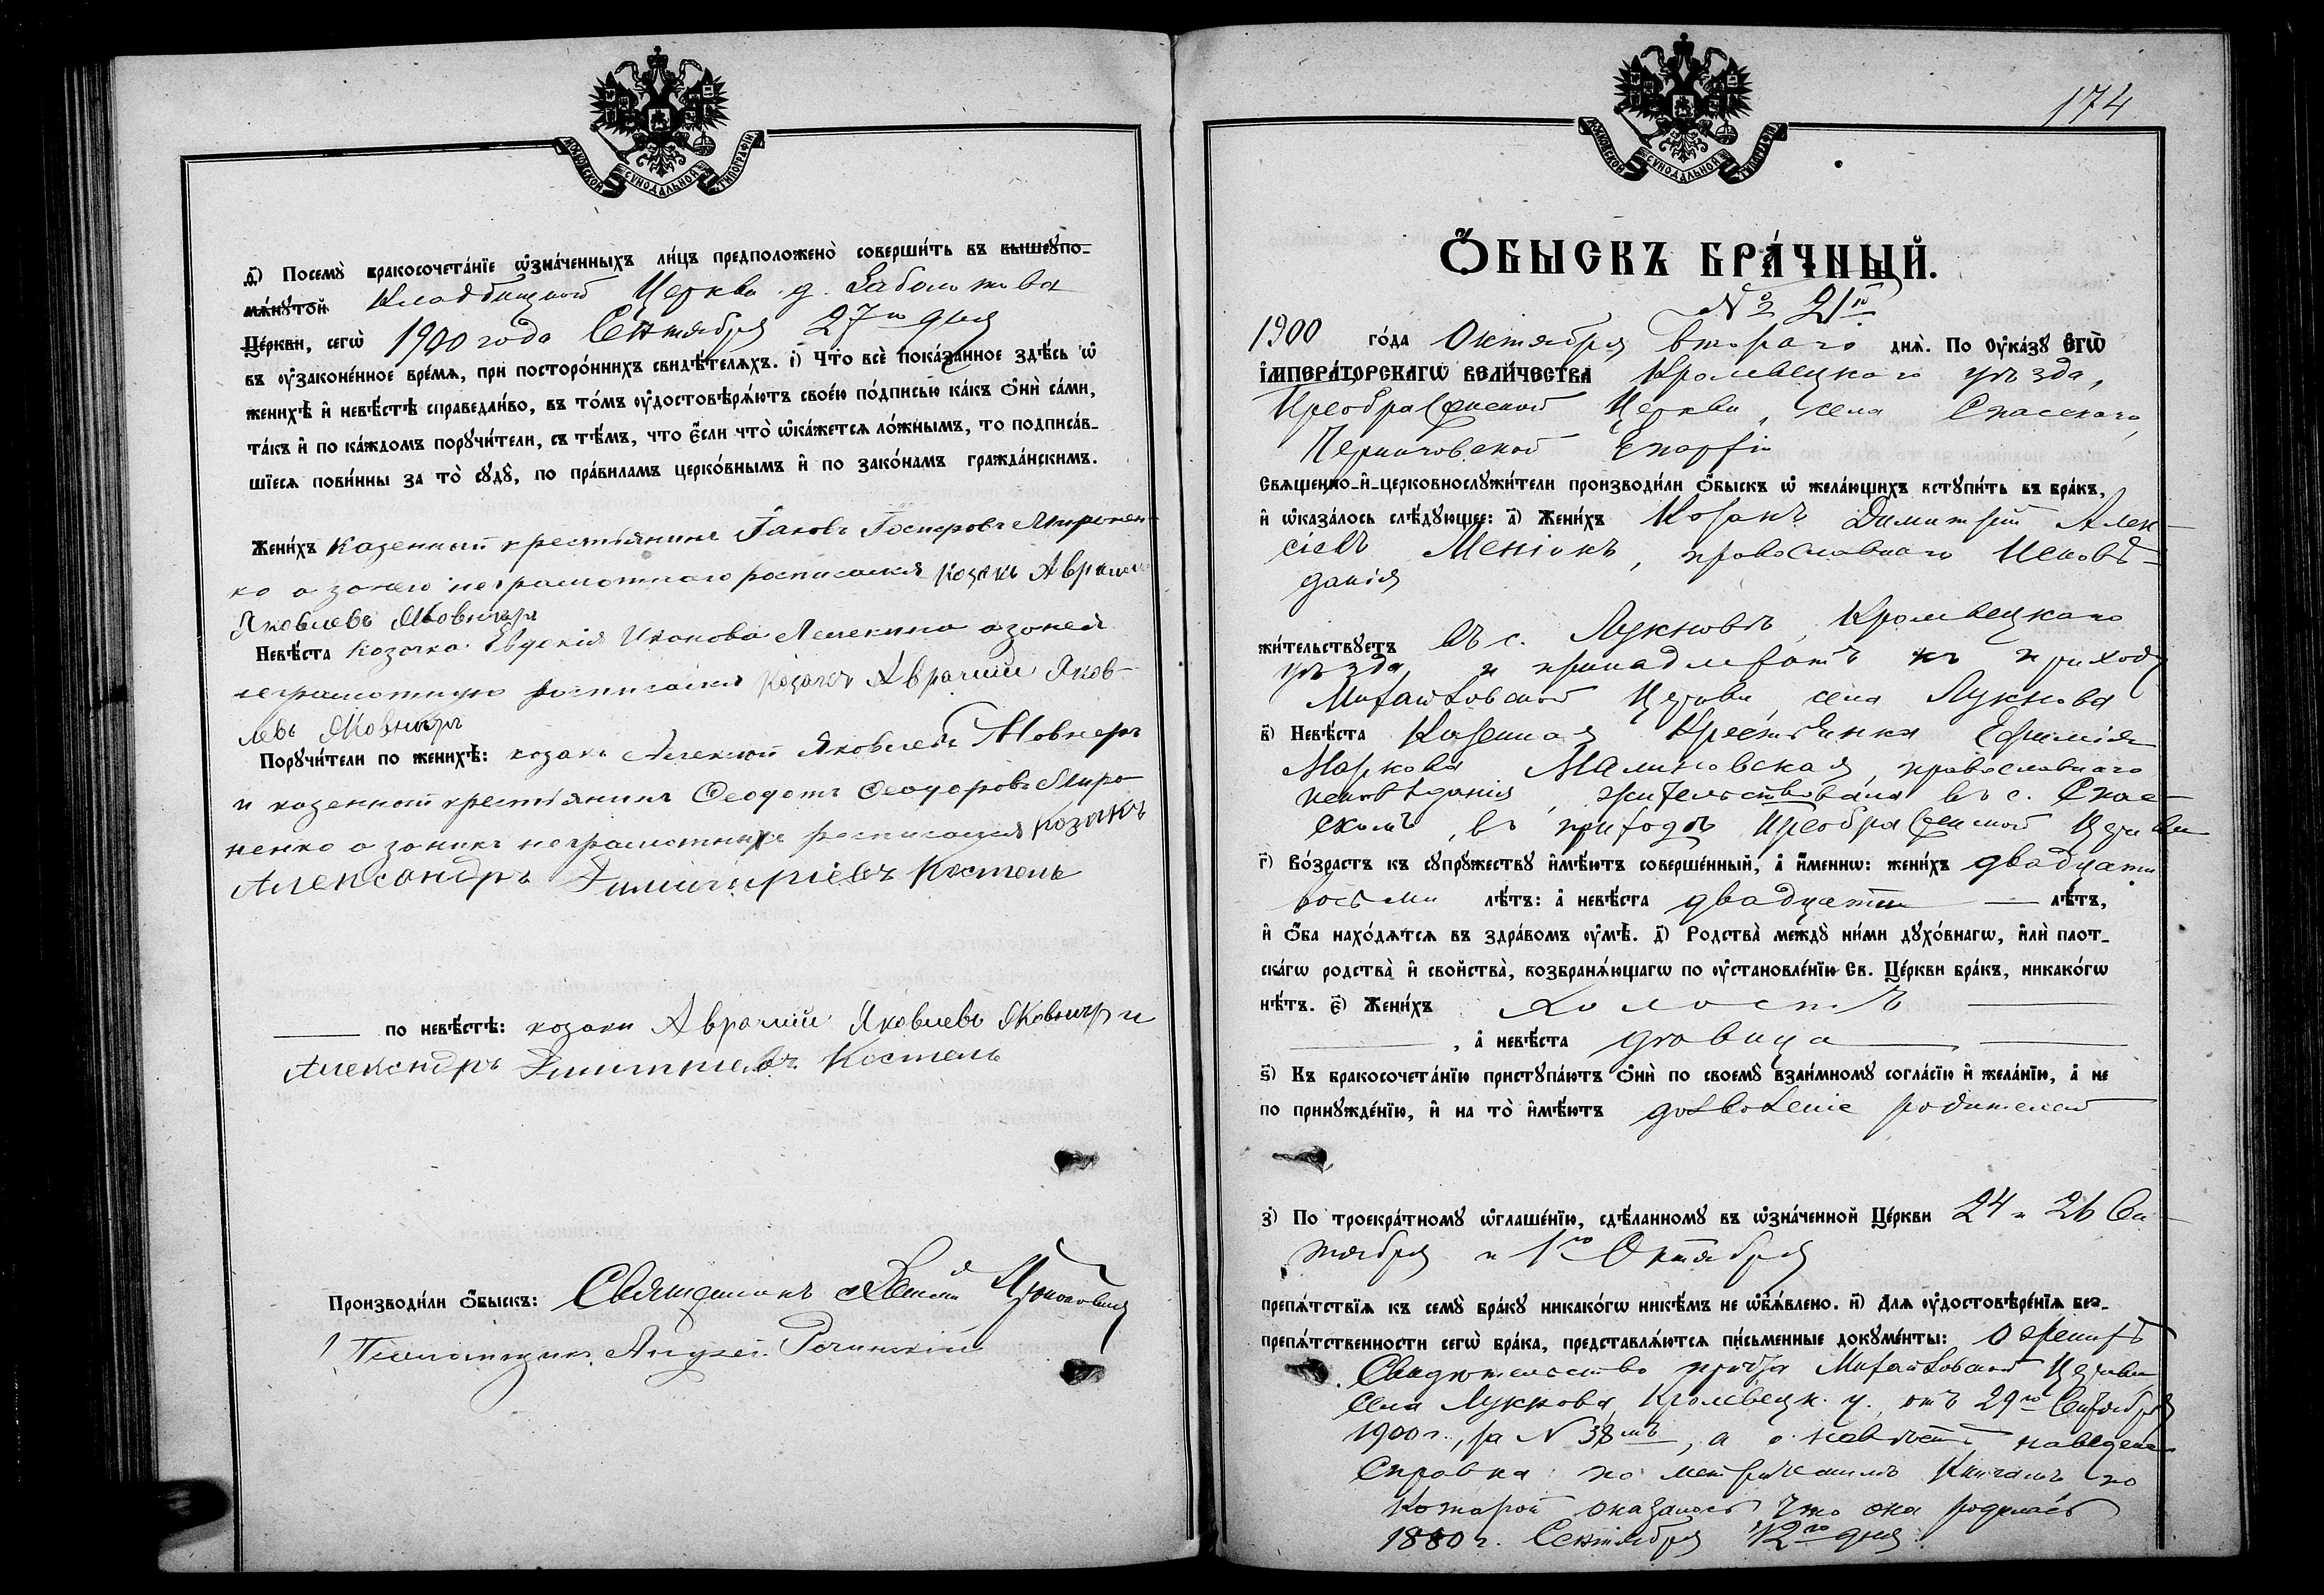 МОСКОВСКОЙ СѴНОДАЛЬНОЙ ТИПОГРАФІИ
ѳ҃) Посемꙋ̀ бракосочета́нїе ѡ҆зна́ченныхъ ли́цъ предположено̀ соверши́ть въ вышеꙋпо-
мѧ́нꙋтой Кладбищной Церкви д. Заболотова
Це́ркви, сегѡ̀ 1900 года Сентября 27го дня
въ ᲂу҆законе́нное вре́мѧ, при посторо́ннихъ свидѣ́телѧхъ. і҃) Что̀ всѐ пока́занное здѣ́сь ѡ҆
женихѣ̀ и҆ невѣ́стѣ справедли́во, въ то́мъ ᲂу҆достовѣрѧ́ютъ свое́ю по́дписью ка́къ ѻ҆нѝ са́ми,
та́къ и҆ по ка́ждомъ порꙋчи́тели, съ тѣ́мъ, что є҆́сли что̀ ѡ҆ка́жетсѧ ло́жнымъ, то подписа́в-
шїесѧ пови́нны за то̀ сꙋдꙋ̀, по пра́виламъ церко́внымъ и҆ по зако́намъ гражда́нскимъ.
Жени́хъ казенный крестьянинъ Іаковъ Миронен-
ко а за него неграмотнаго росписался козакъ Аврамій
Яковлевъ Яковнюръ
Невѣ́ста козачка Евдокія Иванова а за неё
неграмотную росписался козакъ Аврамій Яков-
левъ
Порꙋчи́тели по женихѣ̀: козакъ Алексій Яковлевъ
и казенный крестьянинъ Ѳеодотъ Ѳеодоровъ Миро-
ненко а за нихъ неграмотныхъ росписался козакъ
Александръ Димитріевъ Костень
по невѣ́стѣ: козаки Аврамій Яковлевъ и
Александръ Димитріевъ Костень
Производи́ли ѻ҆́быскъ: Священникъ
Псаломщикъ Андрей
174
МОСКОВСКОЙ СѴНОДАЛЬНОЙ ТИПОГРАФІИ
Ѻ҆́БЫСКЪ БРА́ЧНЫЙ.
№ 21й
1900 го́да Октября втораго днѧ̀. По Оу҆ка́зꙋ Є҆гѡ̀
І҆МПЕРА́ТОРСКАГѠ ВЕЛИ́ЧЕСТВА Кролевецкаго уѣзда,
Преображенской Церкви, села Спасскаго,
Черниговской Епархіи
Свѧще́нно-и҆-церковнослꙋжи́тели производи́ли ѻ҆́быскъ ѡ҆ жела́ющихъ встꙋпи́ть въ бра́къ,
и҆ ѡ҆каза́лось слѣ́дꙋющее: а҃) Жени́хъ Козакъ Димитрій Алек-
сіевъ Меніокъ, православнаго исповѣ-
данія
жи́тельствꙋетъ въ с. Лукновѣ, Кролевецкаго
уѣзда, и принадлежитъ къ приходу
Михайловской Церкви, села Лукнова
в҃) Невѣ́ста Казенная Крестьянка Ефимія
Маркова Малиновская, православнаго
исповѣданія, жительствовала въ с. Спас-
скомъ, въ приходѣ Преображенской Церкви
г҃) Во́зрастъ къ сꙋпрꙋ́жествꙋ и҆мѣ́ютъ соверше́нный, а҆ и҆́меннѡ: жени́хъ двадцати
восьми лѣ́тъ: а҆ невѣ́ста двадцати лѣ́тъ,
и҆ ѻ҆́ба нахо́дѧтсѧ въ здра́вомъ ᲂу҆мѣ̀. д҃) Родства̀ междꙋ̀ ни́ми дꙋхо́внагѡ, и҆лѝ плот-
ска́гѡ родства̀ и҆ свойства̀, возбранѧ́ющагѡ по ᲂу҆становле́нїю Св. Це́ркви бра́къ, никако́гѡ
нѣ́тъ. є҃) Жени́хъ холостъ
, а҆ невѣ́ста дѣвица
ѕ҃) Къ бракосочета́нїю пристꙋпа́ютъ ѻ҆нѝ по своемꙋ̀ взаи́мномꙋ согла́сїю и҆ жела́нїю, а҆ не
по принꙋжде́нїю, и҆ на то̀ и҆мѣ́ютъ дозволеніе родителей
з҃) По троекра́тномꙋ ѡ҆глаше́нїю, сдѣ́ланномꙋ въ ѡ҆зна́ченной Це́ркви 24 и 26 Сен-
тября и 1го Октября
препѧ́тствїѧ къ семꙋ̀ бра́кꙋ никако́гѡ никѣ́мъ не ѡ҆б̾ѧ́влено. и҃) Для ᲂу҆достовѣре́нїѧ без-
препѧ́тственности сегѡ̀ бра́ка, представлѧ́ютсѧ пи́сьменные докꙋме́нты: о женихѣ
Свидѣтельство причта Михайловской Церкви
села Лукнова, Кролевецк. у., отъ 29го Сентября
1900 г., за № 38мъ, а о невѣстѣ наведена
Справка по метрическимъ книгамъ по
которой оказалось что она родилась
1880 г. Сентября 12го дня.